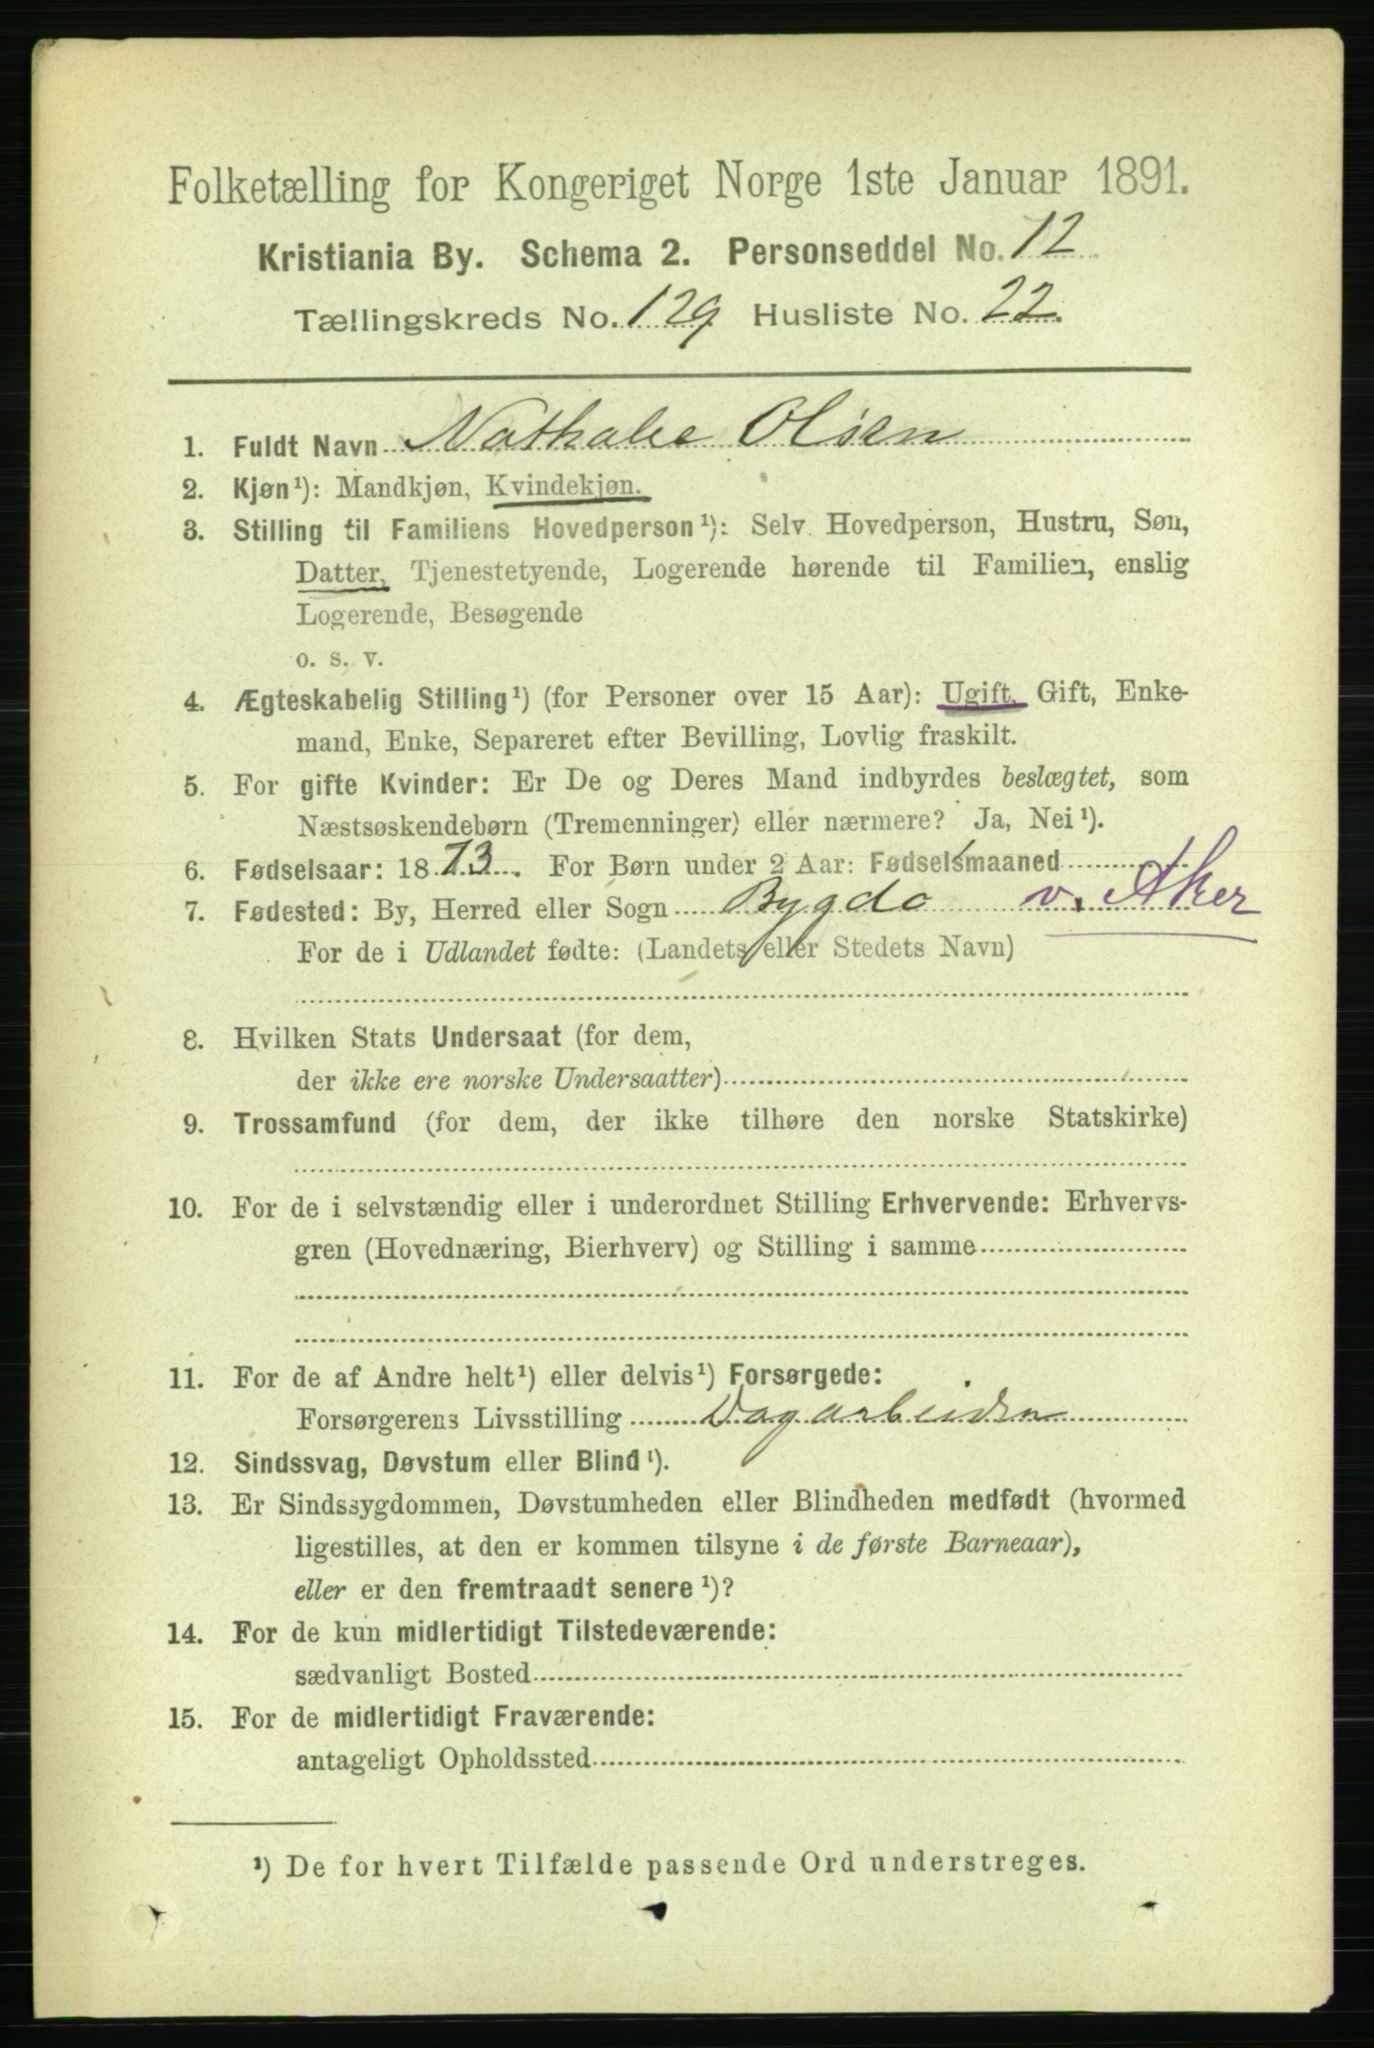 Folketælling for Kongeriget Norge 1ste Januar 1891.
Kristiania By. Schema 2. Personseddel No. 12
Tællingskreds No. 129 Husliste No. 22.
1. Fuldt Navn Nathalie Olsen
2. Kjøn¹): Mandkjøn, Kvindekjøn.
3. Stilling til Familiens Hovedperson¹): Selv Hovedperson, Hustru, Søn,
Datter, Tjenestetyende, Logerende hørende til Familien, enslig
Logerende, Besøgende
o. s. v.
4. Ægteskabelig Stilling¹) (for Personer over 15 Aar): Ugift, Gift, Enke-
mand, Enke, Separeret efter Bevilling, Lovlig fraskilt.
5. For gifte Kvinder: Er De og Deres Mand indbyrdes beslægtet, som
Næstsøskendebørn (Tremenninger) eller nærmere? Ja, Nei¹).
6. Fødselsaar: 1873. For Børn under 2 Aar: Fødselsmaaned
7. Fødested: By, Herred eller Sogn Bygdø v. Aker
For de i Udlandet fødte: (Landets eller Stedets Navn)
8. Hvilken Stats Undersaat (for dem,
der ikke ere norske Undersaatter)
9. Trossamfund (for dem, der ikke tilhøre den norske Statskirke)
10. For de i selvstændig eller i underordnet Stilling Erhvervende: Erhvervs-
gren (Hovednæring, Bierhverv) og Stilling i samme
11. For de af Andre helt¹) eller delvis¹) Forsørgede:
Forsørgerens Livsstilling Dagarbeider
12. Sindssvag, Døvstum eller Blind¹).
13. Er Sindssygdommen, Døvstumheden eller Blindheden medfødt (hvormed
ligestilles, at den er kommen tilsyne i de første Barneaar),
eller er den fremtraadt senere¹)?
14. For de kun midlertidigt Tilstedeværende:
sædvanligt Bosted
15. For de midlertidigt Fraværende:
antageligt Opholdssted
¹) De for hvert Tilfælde passende Ord understreges.